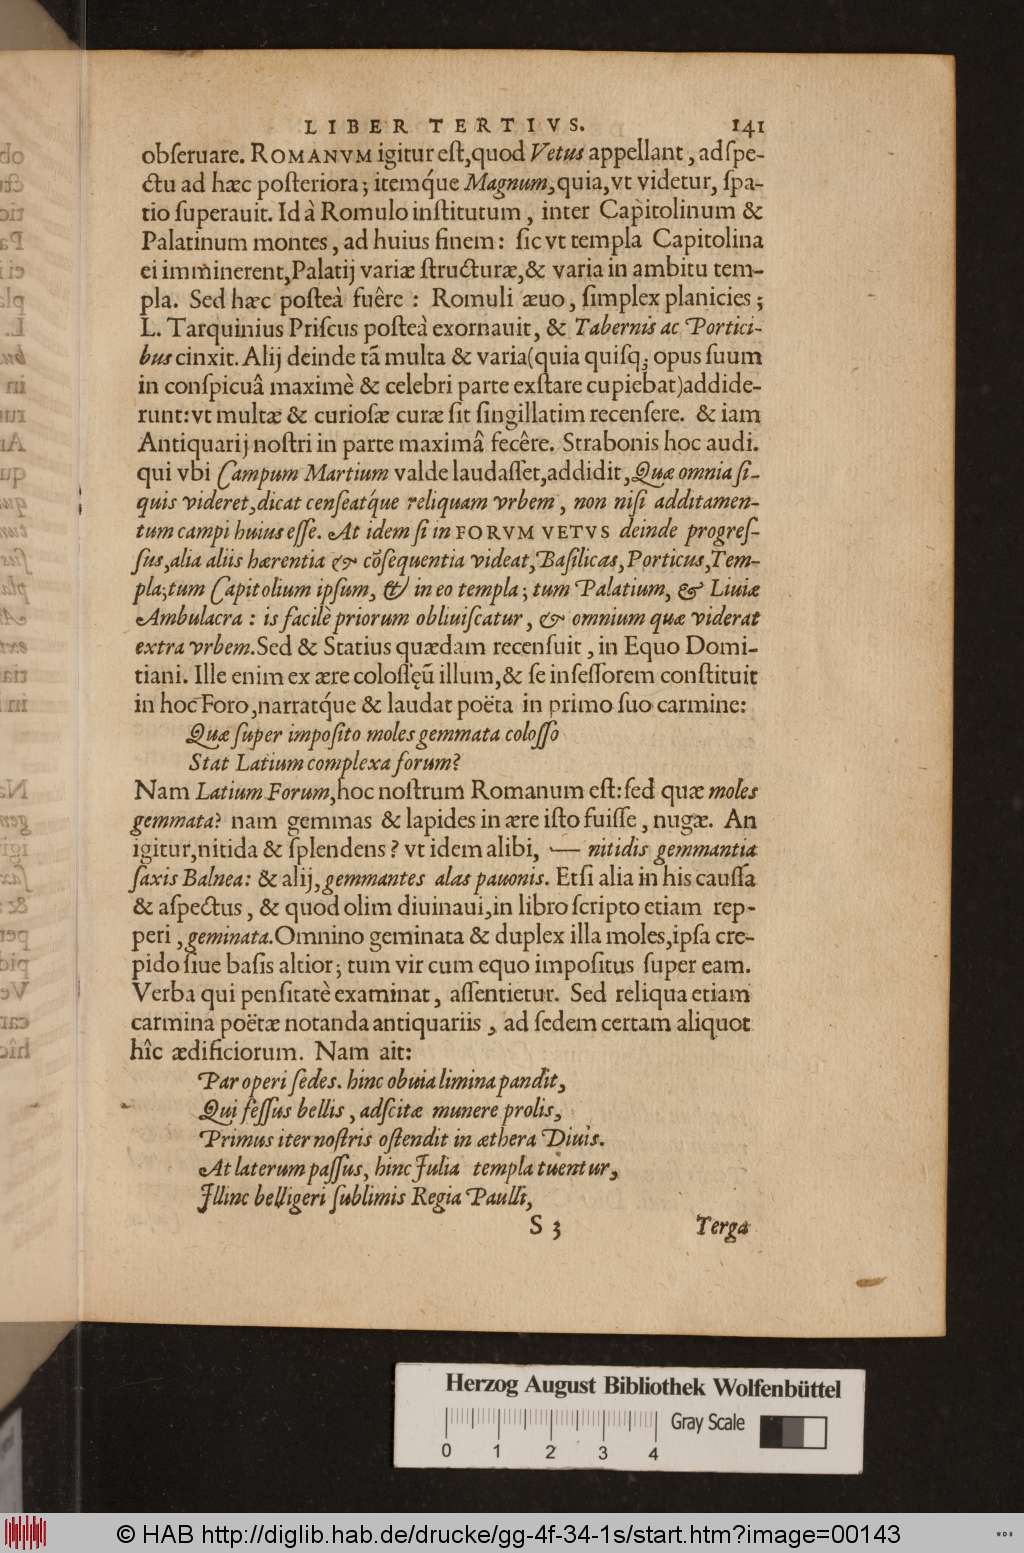 LIBER TERTIVS. 141
obſeruare. ROMANVM igitur eſt, quod Vetus appellant, adſpe-
ctu ad hæc poſteriora; itemq́ue Magnum, quia, vt videtur, ſpa-
tio ſuperauit. Id à Romulo inſtitutum, inter Capitolinum &
Palatinum montes, ad huius finem: ſic vt templa Capitolina
ei imminerent, Palatij variæ ſtructuræ, & varia in ambitu tem-
pla. Sed hæc poſteà fuêre: Romuli æuo, ſimplex planicies;
L. Tarquinius Priſcus poſteà exornauit, & Tabernis ac Portici-
bus cinxit. Alij deinde tā multa & varia (quia quiſq; opus ſuum
in conſpicuâ maximè & celebri parte exſtare cupiebat) addide-
runt: vt multæ & curioſæ curæ ſit ſingillatim recenſere. & iam
Antiquarij noſtri in parte maximâ fecêre. Strabonis hoc audi.
qui vbi Campum Martium valde laudaſſet, addidit, Quæ omnia ſi-
quis videret, dicat cenſeatq́ue reliquam vrbem, non niſi additamen-
tum campi huius eſſe. At idem ſi in FORVM VETVS deinde progreſ-
ſus, alia aliis hærentia & cōſequentia videat, Baſilicas, Porticus, Tem-
pla; tum Capitolium ipſum, & in eo templa; tum Palatium, & Liuiæ
Ambulacra: is facilè priorum obliuiſcatur, & omnium quæ viderat
extra vrbem. Sed & Statius quædam recenſuit, in Equo Domi-
tiani. Ille enim ex ære coloſſęū illum, & ſe inſeſſorem conſtituit
in hoc Foro, narratq́ue & laudat poëta in primo ſuo carmine:
Quæ ſuper impoſito moles gemmata coloſſo
Stat Latium complexa forum?
Nam Latium Forum, hoc noſtrum Romanum eſt: ſed quæ moles
gemmata? nam gemmas & lapides in ære iſto fuiſſe, nugæ. An
igitur, nitida & ſplendens? vt idem alibi, — nitidis gemmantia
ſaxis Balnea: & alij, gemmantes alas pauonis. Etſi alia in his cauſſa
& aſpectus, & quod olim diuinaui, in libro ſcripto etiam rep-
peri, geminata. Omnino geminata & duplex illa moles, ipſa cre-
pido ſiue baſis altior; tum vir cum equo impoſitus ſuper eam.
Verba qui penſitatè examinat, aſſentietur. Sed reliqua etiam
carmina poëtæ notanda antiquariis, ad ſedem certam aliquot
hîc ædificiorum. Nam ait:
Par operi ſedes. hinc obuia limina pandit,
Qui feſſus bellis, adſcitæ munere prolis,
Primus iter noſtris oſtendit in æthera Diuis.
At laterum paſſus, hinc Julia templa tuentur,
Jllinc belligeri ſublimis Regia Paulli,
S 3 Terga
Herzog August Bibliothek Wolfenbüttel
Gray Scale
0 1 2 3 4
© HAB http://diglib.hab.de/drucke/gg-4f-34-1s/start.htm?image=00143